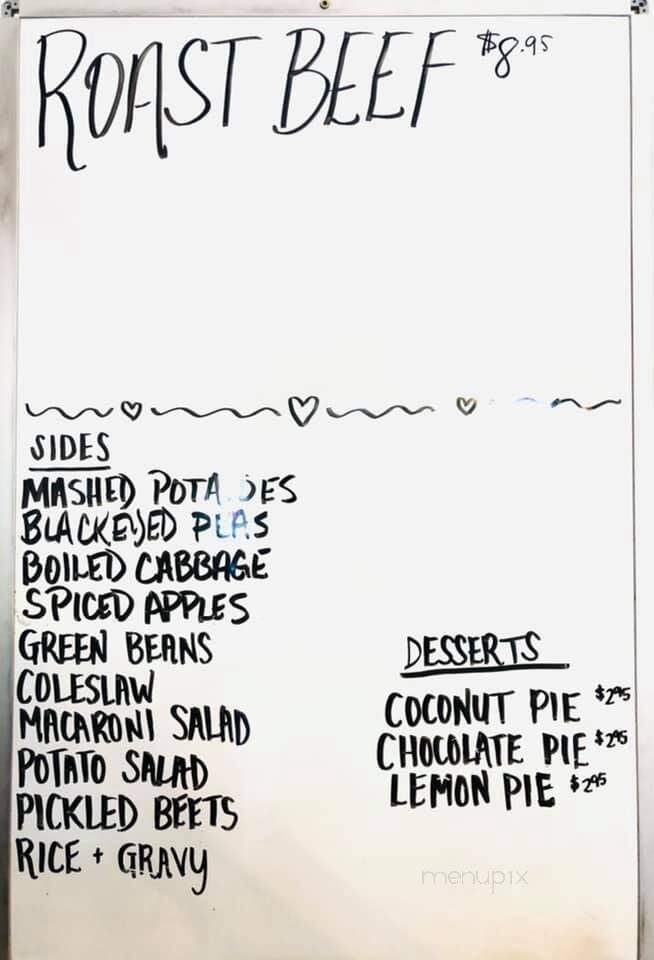 ROAST BEEF $8.95
SIDES
MASHED POTATOES
BLACKEYED PEAS
BOILED CABBAGE
SPICED APPLES
GREEN BEANS
COLESLAW
MACARONI SALAD
POTATO SALAD
PICKLED BEETS
RICE + GRAVY
DESSERTS
COCONUT PIE $2.95
CHOCOLATE PIE $2.95
LEMON PIE $2.95
menupix